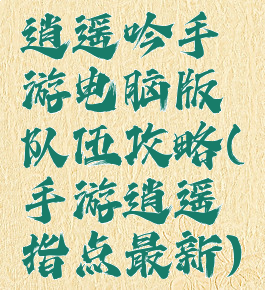 逍遥吟手
游电脑版
队伍攻略(
手游逍遥
指点最新)